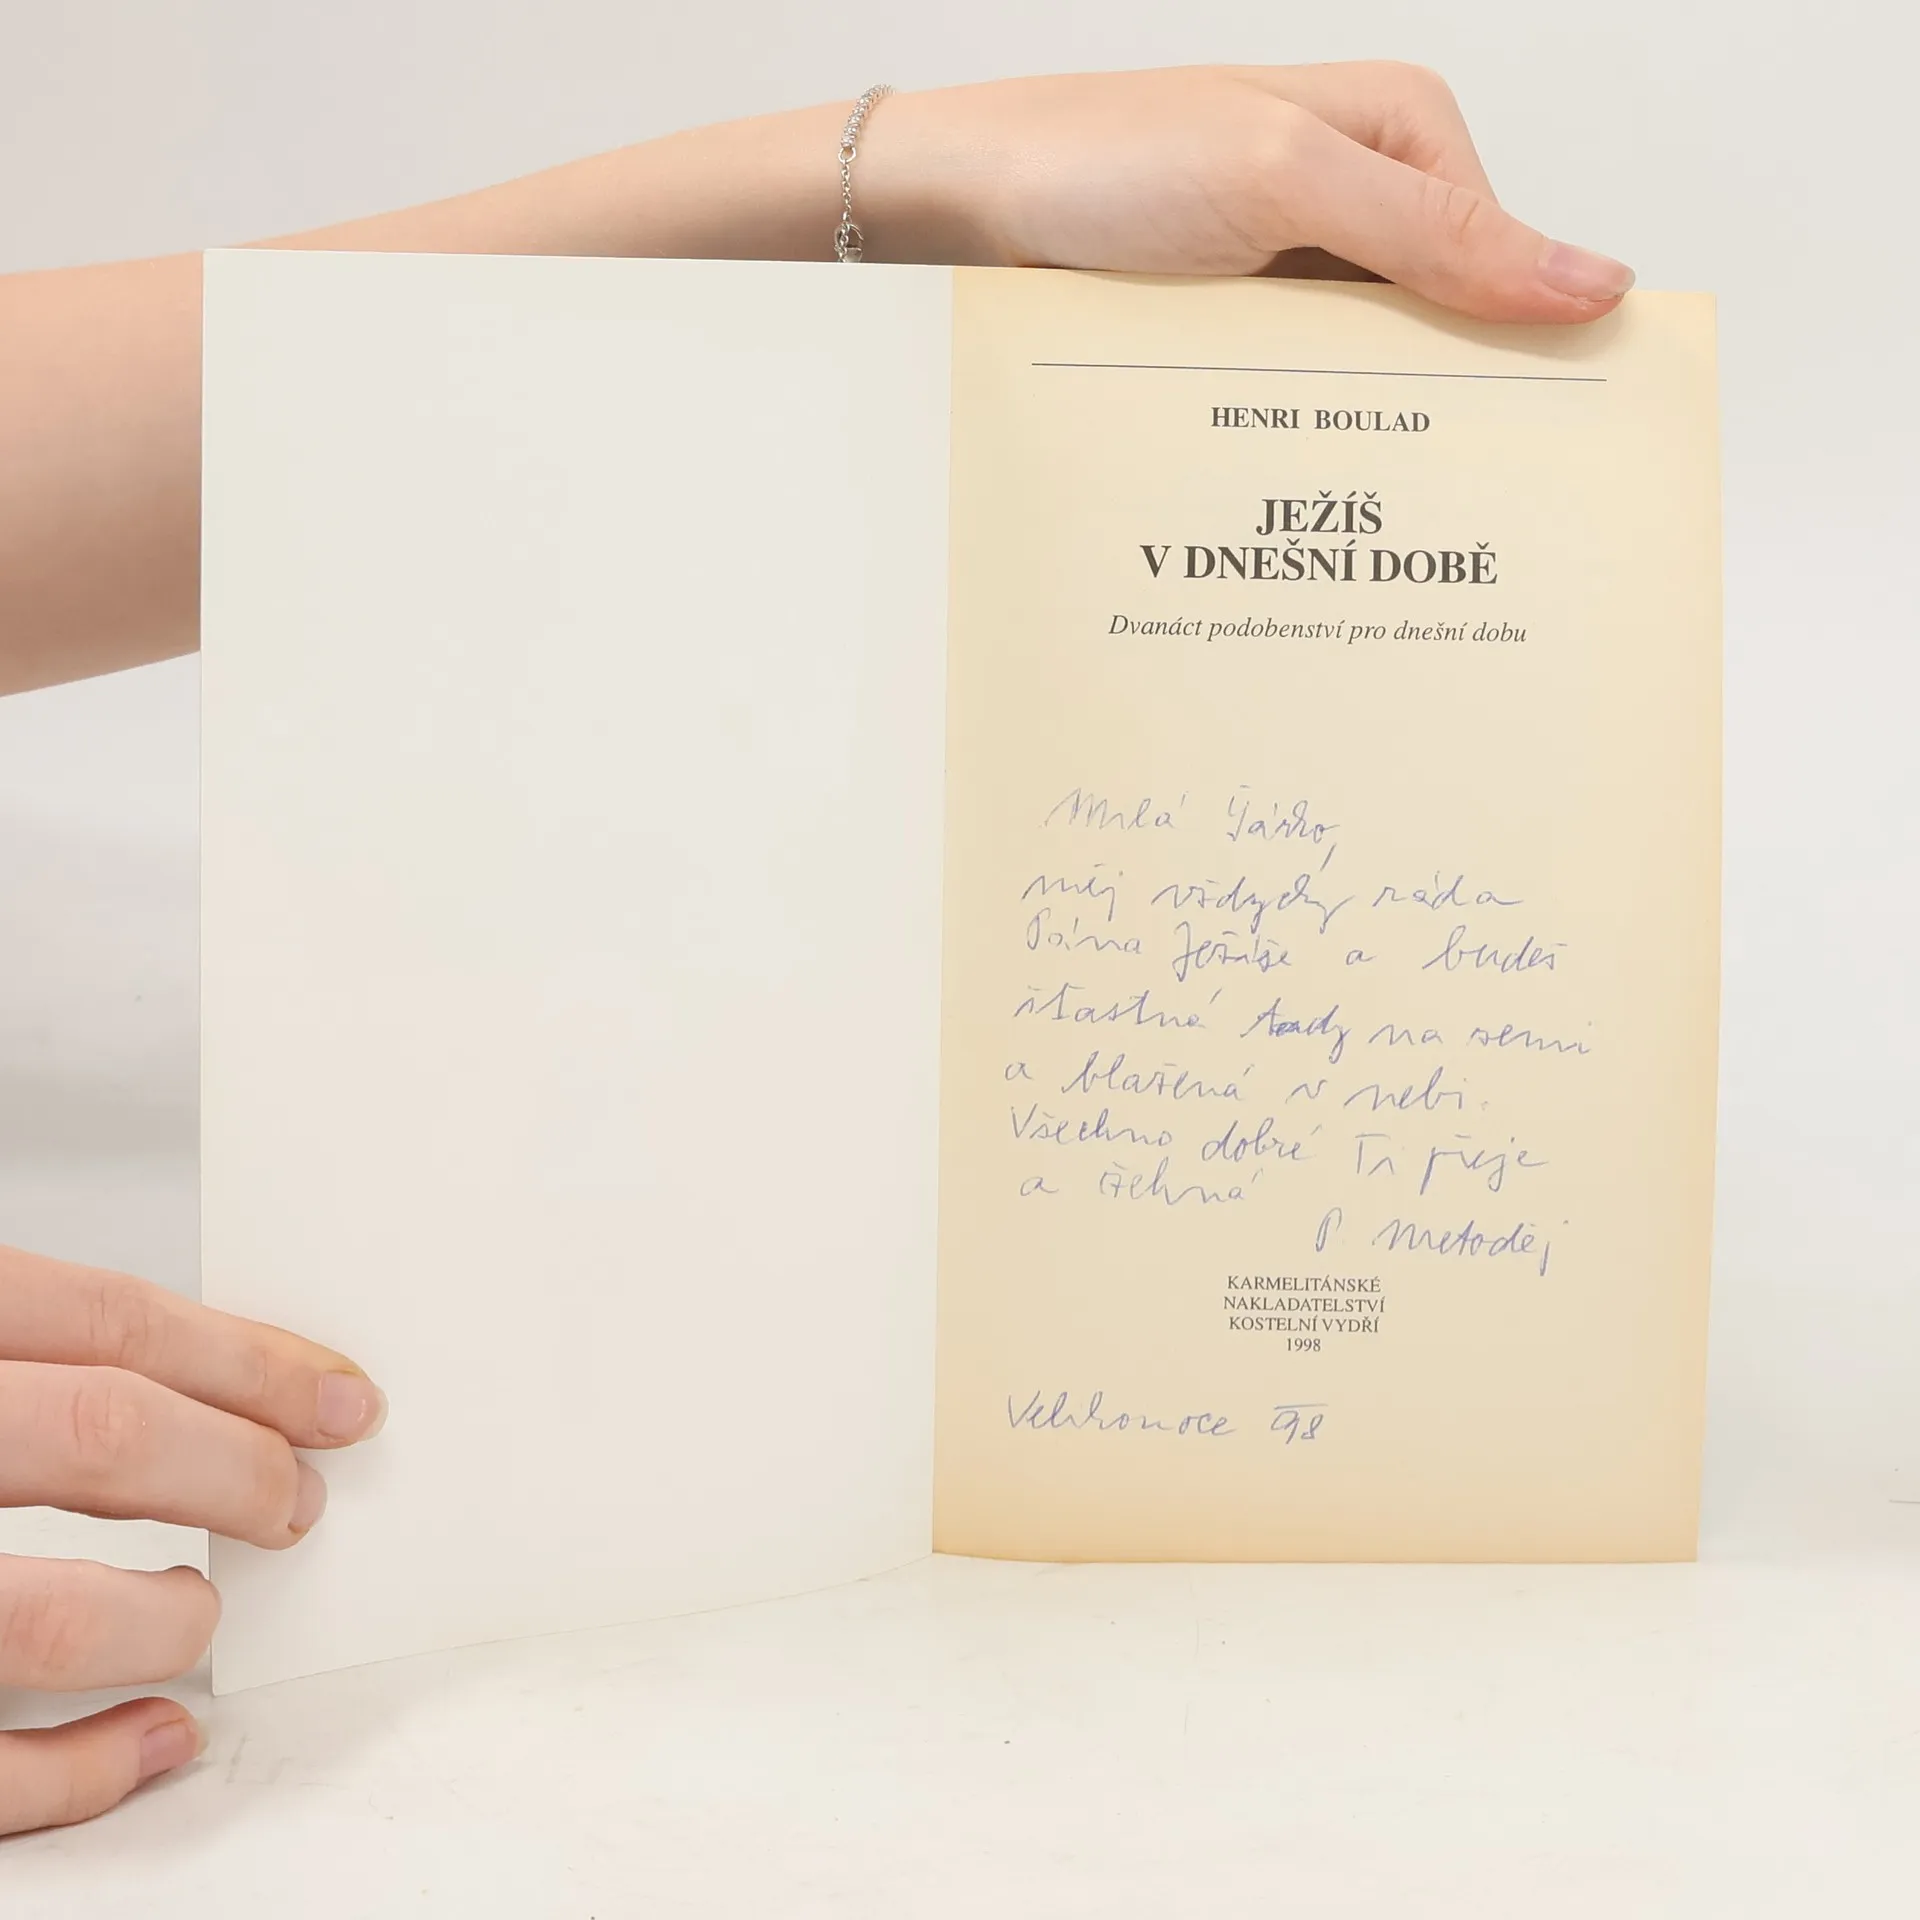 HENRI BOULAD
JEŽÍŠ
V DNEŠNÍ DOBĚ
Dvanáct podobenství pro dnešní dobu
Milá Járko,
měj vždycky ráda
Pána Ježíše a budeš
šťastná tady na zemi
a blažená v nebi.
Všechno dobré Ti přeje
a žehná
P. Metoděj
KARMELITÁNSKÉ
NAKLADATELSTVÍ
KOSTELNÍ VYDŘÍ
1998
Velikonoce 98